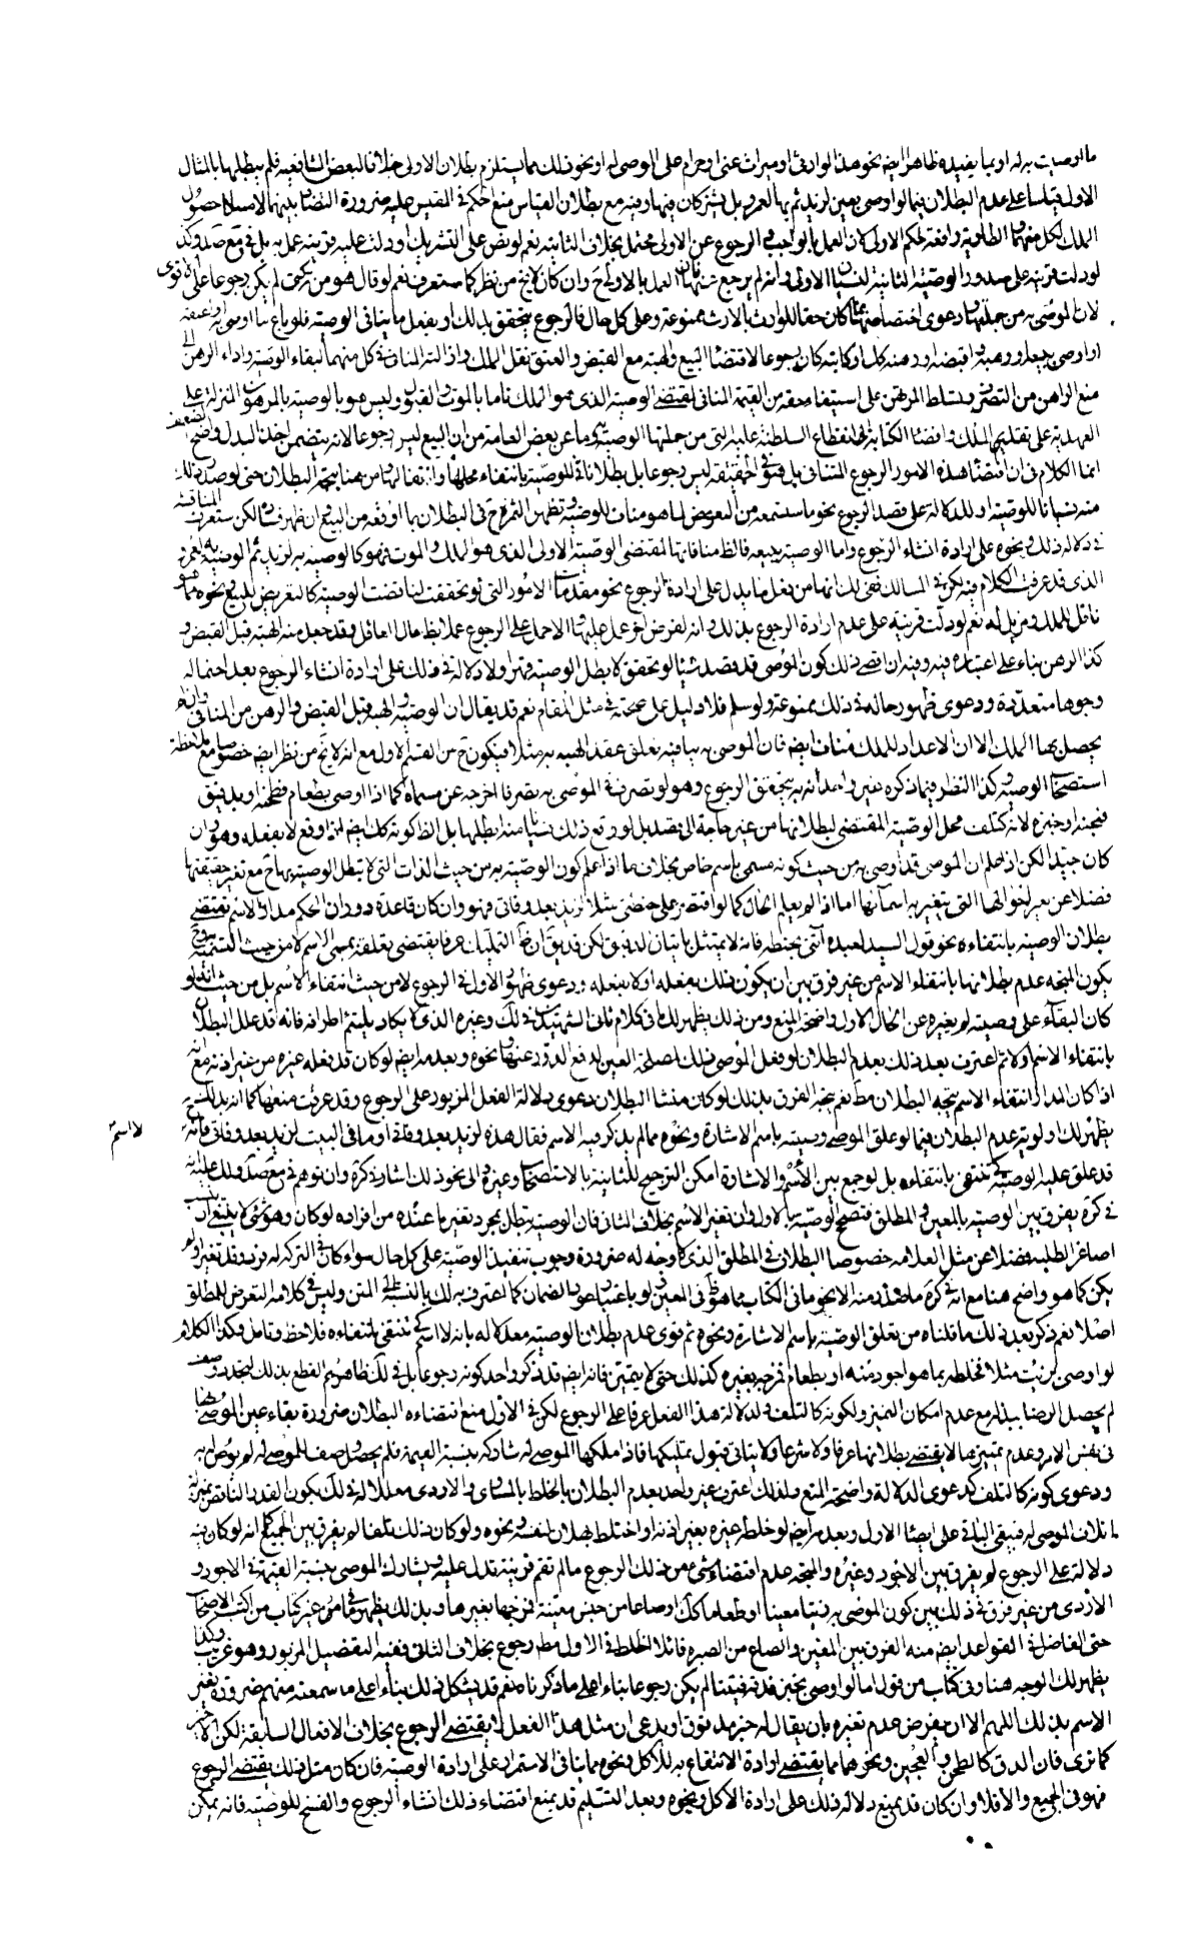 ما اوصيت به له او بما يفيده ظاهرا ايضا نحو هذا لوارثي او ميراث عني او حرام على الموصى له او نحو ذلك مما يستلزم بطلان الاولى خلافا لبعض الشافعية فلم يبطلها بالمثال
الاول قياسا على عدم البطلان فيما لو اوصى بعين لزيد ثم بها لعمرو بل يشتركان فيها وفيه مع بطلان القياس منع الحكم في المقيس عليه ضرورة التضاد بينهما
الملك لكل منهما الطارية رافعة لحكم الاولى كان العمل بالواجب في الرجوع عن الاولى محتمل بخلاف الثانية نعم لو نص على التشريك او دلت عليه قرينة عمل به بل في مع صد وكذا
لو دلت قرينة على صدور الوصية الثانية لنسيان الاولى وانه لم يرجع عنها فان العمل بالاولى ح وان كان لا يخ من نظر كما ستعرف نعم لو قال هو من تركتي لم يكن رجوعا على الاقوى
لان الموصى به من جملتها ودعوى اختصاصها بما كان حقا للوارث بالارث ممنوعة وعلى كل حال فالرجوع يتحقق بذلك او بفعل ما ينافي الوصية فلو باع ما اوصى به او اعتقه
او اوصى ببيعه او وهبه واقبضه او رهنه كل او كاتبه كان رجوعا لاقتضاء البيع والهبة مع القبض والعتق نقل الملك وازالته المنافي كل منهما لبقاء الوصية واداء الرهن الى
منع الراهن من التصرف وتسلط المرتهن على استيفاء حقه من القيمة المنافي لمقتضى الوصية الذي هو الملك تاما بالموت والقبول وليس هو بالوصية بالمرهون المنزلة على
العهدية على تقدير الملك واقتضاء الكتابة لانقطاع السلطنة عليه التي من جملتها الوصية وما عن بعض العامة من ان البيع ليس رجوعا لانه يتضمن اخذ البدل واضح الضعف
انما الكلام في ان اقتضاء هذه الامور الرجوع التنافي بل هو في الحقيقة ليس رجوعا بل بطلانا للوصية بانتفاء محلها وانتقالها من هنا يتجه البطلان حتى لو صدر ذلك
منه نسيانا للوصية او لدلالته على قصد الرجوع نحو ما ستسمعه من التعريض لما هو مناف للوصية وتظهر الثمرة ح في البطلان بما اوقعه من البيع ان ظهر فساده لكن ستعرف المناقشة
في دلالة ذلك ونحوه على ارادة انشاء الرجوع واما الوصية ببيعه فالظ منافاتها لمقتضى الوصية الاولى الذي هو الملك والموت فهو كالوصية به لزيد ثم الوصية به لعمرو
الذي قد عرفت الكلام فيه لكن في المسالك في ذلك انها من فعل ما يدل على ارادة الرجوع نحو مقدمات الامور التي لو تحققت لناقضت الوصية كالتعريض للبيع ونحوه مما هو
ناقل للملك ومزيل له نعم لو دلت قرينة على عدم ارادة الرجوع بذلك وانه لغرض اخر عمل عليها والا حمل على الرجوع عملا بظ حال العاقل وقد جعل منه الهبة قبل القبض و
كذا الرهن بناء على اعتباره فيه وفيه ان اقصى ذلك كون الموصي قد قصد شيئا لو تحقق لا بطل الوصية قهرا ولا دلالة في ذلك على ارادة انشاء الرجوع بعد احتماله
وجوها متعددة ودعوى ظهور حاله في ذلك ممنوعة ولو سلم فلا دليل على حجيته في مثل المقام نعم قد يقال ان الوصية والهبة قبل القبض والرهن من المنافي وان لم
يحصل بها الملك الا ان الاعداد للملك مناف ايضا فان الموصى به ينافيه تعلق عقد الهبة به مثلا فيكون ح من القسم الاول مع انه لا يخ من نظر ايضا خصوصا مع ملاحظة
استصحاب الوصية وكذا النظر فيما ذكره غير واحد انه به يتحقق الرجوع وهو لو تصرف في الموصى به تصرفا اخرجه عن مسماه كما اذا اوصى بطعام فطحنه او بدقيق
فعجنه او خبزه لانه كتلف محل الوصية المقتضى لبطلانها من غير حاجة الى قصد بل لو وقع ذلك نسيانا منه ابطلها بل الظ كونه كك ايضا لو وقع لا بفعله وهو وان
كان جيدا لكن اذا علم ان الموصي قد اوصى به من حيث كونه مسمى باسم خاص بخلاف ما اذا علم كون الوصية به من حيث الذات التي لا تبطل الوصية بها ح مع تغير حقيقتها
فضلا عن تغير احوالها التي يتغير به اسمائها اما اذا لم يعلم الحال كما لو اقتصر على حنطتي مثلا لزيد بعد وفاتي فهو وان كان قاعدة دوران الحكم مدار الاسم تقتضي
بطلان الوصية بانتفاءه نحو قول السيد لعبده ائتني بحنطة فانه لا يمتثل باتيان الدقيق لكن قد يق ان التمليك عرفا يقتضي تعلقه بمسمى الاسم لا من حيث التسمية وح
يكون المتجه عدم بطلانها بانتفاء الاسم من غير فرق بين ان يكون ذلك بفعله او لا بفعله ودعوى ظهور الاول في الرجوع لا من حيث انتفاء الاسم بل من حيث انه لو
كان البقاء على وصيته لم يغيره عن الحال الاول واضحة المنع ومن ذلك يظهر لك ما في كلام ثاني الشهيدين في لك وغيره الذي لا يكاد يلتئم اطرافه فانه قد علل البطلان
بانتفاء الاسم ولا ثم اعترف بعد ذلك بعدم البطلان لو فعل الموصي ذلك لمصلحة العين لدفع الدود عنها ونحوه وبعدمه ايضا لو كان قد فعله غيره من غير اذنه مع انه
اذا كان المدار انتفاء الاسم يتجه البطلان مط نعم يتجه الفرق بذلك لو كان منشأ البطلان دعوى دلالة الفعل المزبور على الرجوع وقد عرفت منعها كما انه بذلك
يظهر لك اولوية عدم البطلان فيما لو علق الموصي وصيته باسم الاشارة ونحوه مما لم يذكر فيه الاسم فقال هذه لزيد بعد وفاتي او ما في البيت لزيد بعد وفاتي فانه
لا اسم
قد علق عليه الوصية كي تنتفى بانتفاءه بل لو جمع بين الاسم والاشارة امكن الترجيح للثانية بالاستصحاب وغيره والى نحو ذلك اشار في كره وان توهم في مع صد ولد عليه انه
في كره يفرق بين الوصية بالمعين والمطلق فتصح الوصية بالاول وان تغير الاسم بخلاف الثاني فان الوصية تبطل بمجرد تغير ما عنده من افراده لو كان وهو شيء لا ينبغي ان ينسب
اصاغر الطلبة فضلا عن مثل العلامة خصوصا البطلان في المطلق الذي لا وجه له ضرورة وجوب تنفيذ الوصية على كل حال سواء كان في التركة له فرد وقد تغير او لم
يكن كما هو واضح هنا مع انه في كره ما صدر منه الا نحو ما في الكتاب مما هو ظ في المعين ولو باعتبار عود الضمان كما اعترف به لك بالنسبة الى المتن وليس في كلامه التعرض للمطلق
اصلا نعم ذكر بعد ذلك ما قلناه من تعلق الوصية باسم الاشارة ونحوه ثم قوى عدم بطلان الوصية معللا له بانه لا اسم كي تنتفي بانتفاءه فلاحظ وتامل وكذا الكلام
لو اوصى بزيت مثلا فخلطه بما هو اجود منه او بطعام فمزجه بغيره كذلك حتى لا يتميز فانه ايضا قد ذكر واحد كونه رجوعا بل في لك ظاهرهم القطع بذلك لتجدد وصف
لم يحصل الرضا ببذله مع عدم امكان التميز ولكونه كالتلف ولدلالة هذا الفعل عرفا على الرجوع لكن في الاول منع اقتضاءه البطلان ضرورة بقاء عين الموصى بها
في نفس الامر وعدم تميزها لا يقتضي بطلانها عرفا ولا شرعا ولا ينافي قبول تمليكها فاذا ملكها الموصى له شاركه بنسبة القيمة فلم يحصل وصف للموصى له لم يوص له به
ودعوى كونه كالتلف كدعوى الدلالة واضحة المنع ولذلك اعترف غير واحد بعدم البطلان بالخلط بالمساوي والاردى معللا له في لك بكون القدر الناقص بمنزلة
اتلاف الموصي له فيبقى الباقي على ايصاء الاول وبعدمه ايضا لو خلطه غيره بغير اذنه او اختلط بهلان بنفسه ونحوه ولو كان ذلك تلفا لم يفرق بين الجميع كما انه لو كان فيه
دلالة على الرجوع لم يفرق بين الاجود وغيره والمتجه عدم اقتضاء شيء من ذلك الرجوع ما لم تقم قرينة تدل عليه ويشارك الموصي بنسبة القيمة في الاجود و
الاردى من غير فرق في ذلك بين كون الموصى به زيتا معينا او طعاما كك او صاعا من حنس معينة فمزجها بغيرها وبذلك يظهر ما في عن غير كتاب من كتب الاصحاب
حتى الفاضل في القواعد ايضا منه الفرق بين المعين والصاع من الصبرة قائلا الخلط في الاول مط رجوع بخلاف الثاني ففيه التفصيل المزبور وهو غريب وكذا
يظهر لك الوجه هنا وفي كتاب من قول اما لو اوصى بخبز فدقه فتيتا لم يكن رجوعا بناء على ما ذكرناه نعم قد يشكل ذلك بناء على ما سمعته منهم ضرورة تغير
الاسم بذلك اللهم الا ان يفرض عدم تغيره بان يقال له خبز مدقوق او يدعى ان مثل هذا الفعل لا يقتضي الرجوع بخلاف الافعال السابقة لكن الاخير
كما ترى فان الدق كالطحن والعجين ونحوهما مما يقتضي ارادة الانتفاع به للاكل ونحوه مما ينافي الاستمرار على ارادة الوصية فان كان مثل ذلك يقتضي الرجوع
فهو في الجميع والا فلا وان كان قد يمنع دلالة ذلك على ارادة الاكل ونحوه وبعد التسليم قد يمنع اقتضاء ذلك انشاء الرجوع والفسخ للوصية فانه يمكن